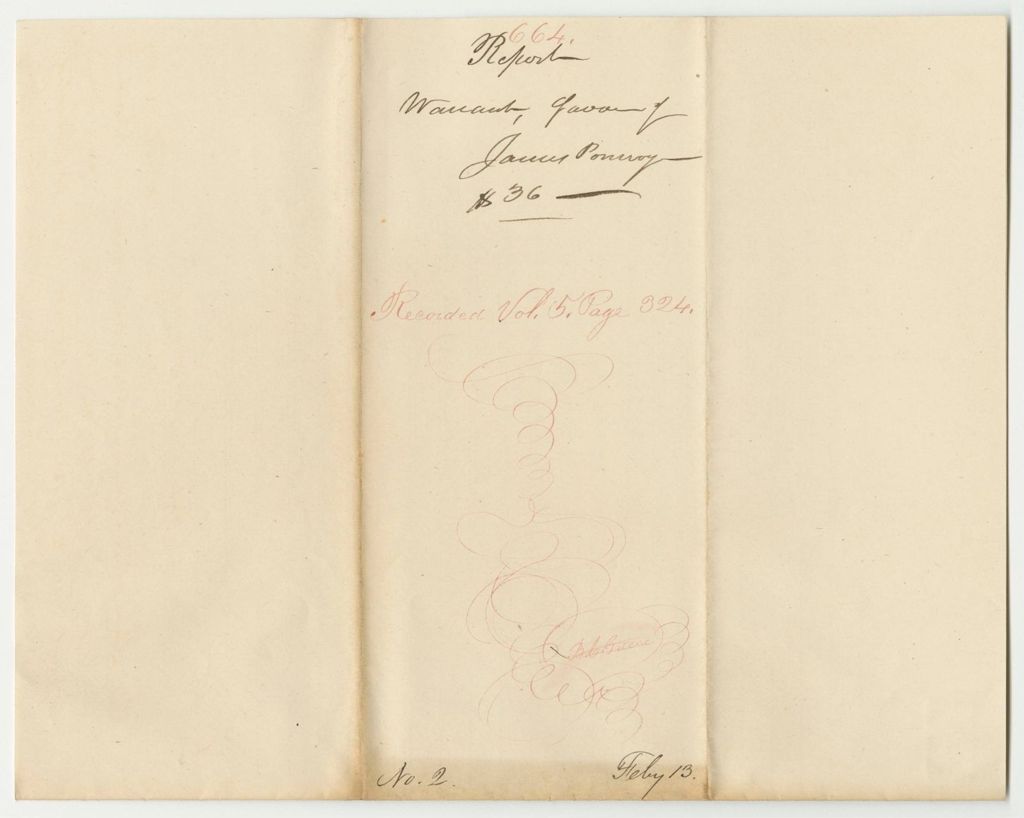 664.
Report
Warrant, favor of
James Pomroy
$36
Recorded Vol. 5. Page 324.
No. 2. Feby 13.